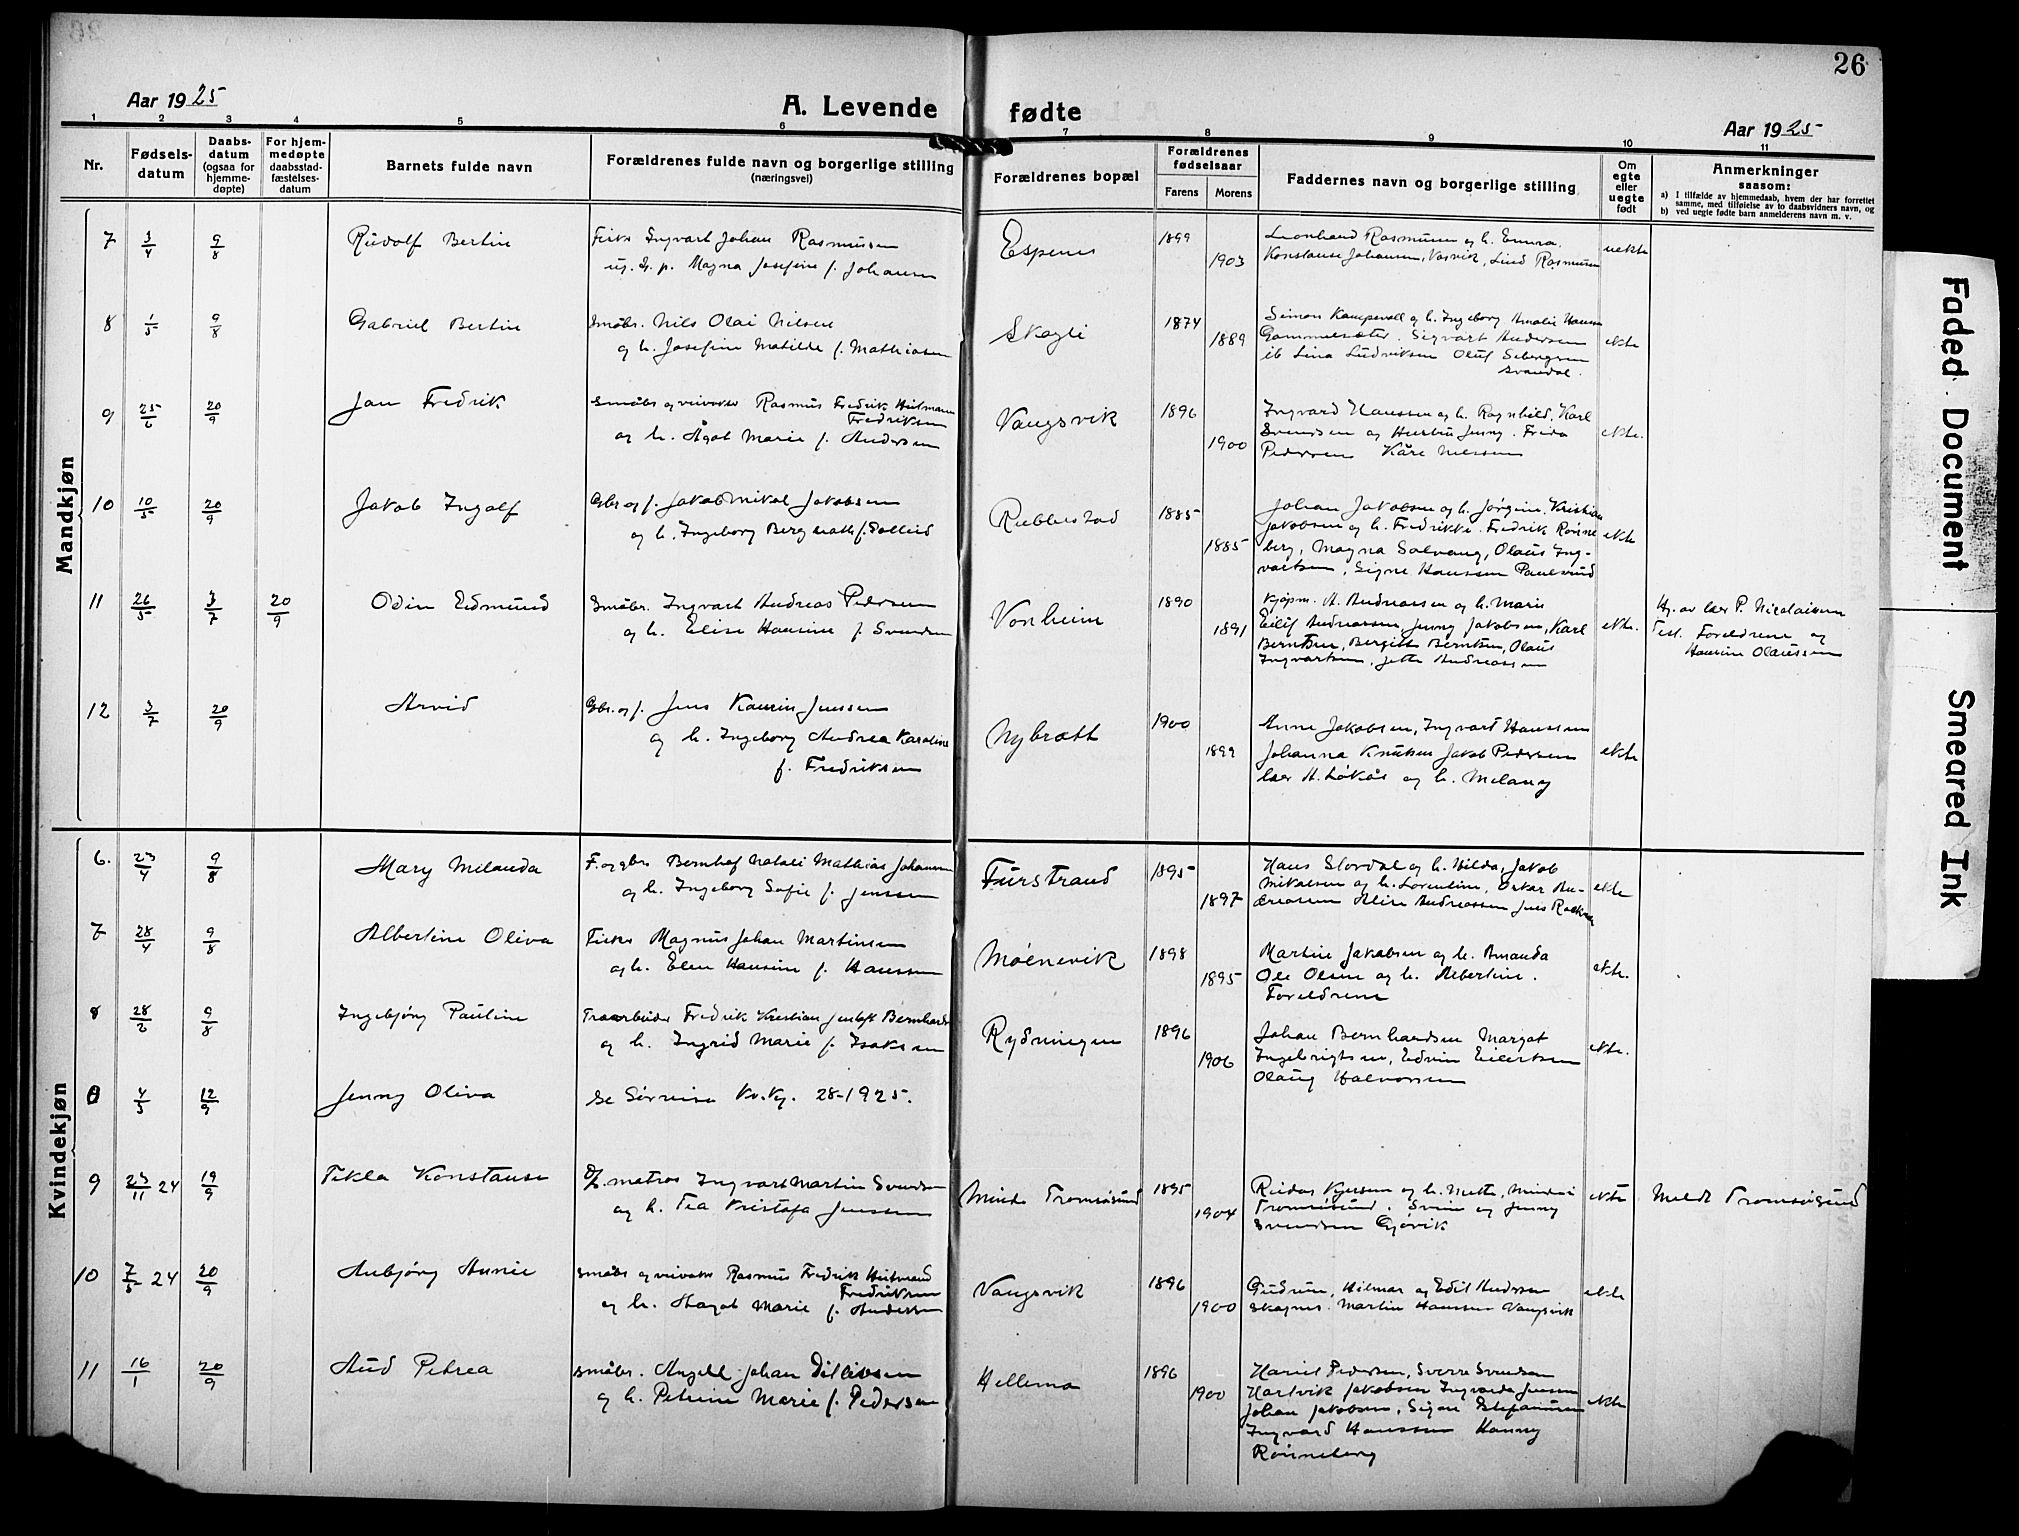 26
Aar 1925
A. Levende fødte
Aar 1925
1 2 3 4 5 6 7 8 9 10 11
Nr.
Fødsels-
datum
Daabs-
datum
(ogsaa for
hjemme-
døpte)
For hjem-
medøpte
daabsstad-
fæstelses-
datum
Barnets fulde navn
Forældrenes fulde navn og borgerlige stilling
(næringsvei)
Forældrenes bopæl
Forældrenes
fødselsaar
Farens Morens
Faddernes navn og borgerlige stilling
Om
egte
eller
uegte
født
Anmerkninger
saasom:
a) I tilfælde av hjemmedaab, hvem der har forrettet
samme, med tilføielse av to daabsvidners navn, og
b) ved uegte fødte barn anmelderens navn m. v.
Mandkjøn
7 3/4 9/8 Rudolf Bertin Fisk. Ingvart Johan Rasmussen Espenes 1899 Leonhard Rasmussen og h. Emma. uekte
ug. p. Magna Josefine f. Johansen 1903 Konstanse Johansen, Vasvik, Lind Rasmussen
8 1/5 9/8 Gabriel Bertin Småbr. Nils Olai Nilsen Skogli 1874 Simon Kampevoll og h. Ingeborg Amalie Hansen
og h. Josefine Matilde f. Mathiasen 1889 Gammelseter. Sigvart Andersen ekte
ib Lina Ludviksen Oluf Sebergsen
Svandal.
9 25/6 20/9 Jan Fredrik Småbr og veivokter Rasmus Fredrik Hilmann Vangsvik 1896 Ingvard Hanssen og h. Ragnhild. Karl
Fredriksen
og h. Ågot Marie f. Andersen 1900 Svendsen og Hustru Jenny. Frida ekte.
Pedersen Kåre Nilssen
10 10/5 20/9 Jakob Ingolf Gbr og f. Jakob Mikal Jakobsen Rubbestad 1885 Johan Jakobsen og h. Jørgine. Kristian
og h. Ingeborg Bergseath f. Solleid 1885 Jakobsen og h. Fredrikke. Fredrik Rønne ekte
berg, Magna Solvang, Olaus Ing-
vartsen, Signe Hanssen Paulsrud
11 26/5 3/7 20/9 Odin Edmund Småbr. Ingvart Andreas Pedersen Vonheim 1890 Kjøpm. A. Andreassen og h. Marie Hj. av lær P. Nicolaisen
og h. Elise Hansine f. Svendsen 1891 Eilif Andreassen, Jenny Jakobsen, Karl ekte. Test. Foreldrene og
Berntsen, Bergitte Berntsen, Olaus Hansine Olaussen
Ingvartsen, Jette Andreassen
12 3/7 20/9 Arvid Gbr. og f. Jens Kaurin Jenssen Nybrått 1900 Anne Jakobsen, Ingvart Hanssen
og h. Ingeborg Andrea Karoline 1899 Johanna Knutsen Jakob Pedersen ekte
f. Fredriksen lær H. Løkås og h. Melany
Kvindekjøn
6. 23/4 9/8 Mary Milanda F. og gbr Bernhof Natali Mathias Johansen Furstrand 1895 Hans Slordal og h. Hilda, Jakob
og h. Ingeborg Sofie f. Jenssen 1897 Mikalsen og h. Lorentine, Oskar An- ekte
dreassen Alise Andreassen Jens
7 28/4 9/8 Albertine Oliva Fisker Magnus Johan Martinsen Moenevik 1898 Martin Jakobsen og h. Amanda
og h. Elen Hansine f. Hanssen 1895 Ole Olsen og h. Albertine. ekte.
Foreldrene
8 28/2 9/8 Ingebjørg Pauline Fredrik Kristian Bernhards Rydningen 1896 Johan Bernhardsen Margot ekte.
og h. Ingrid Marie f. Isaksen 1906 Ingebrigtsen, Edvin Eilertsen
Olaug Halvorsen
0 4/5 12/9 Jenny Oliva se Sørreisa Kv. Kj. 28-1925.
9 23/11 24 19/9 Tekla Konstanse matros Ingvart Martin Svendsen Minde Tromsøsund 1895 Reidar og h. Mette, Minde i ekte Meldt Tromsøysund
og h. Tea Kristofa Jenssen 1904 Tromsøsund. Svein og Jenny
Svendsen Gjøvik
10 7/5 24 20/9 Anbjørg Annie Småbr og veivokter Rasmus Fredrik Hilmand Vangsvik 1896 Gudrun, Hilmar og Edit Andersen ekte
Fredriksen
og h. Hagot Marie f. Andersen 1900 Skognes. Martin Hanssen Vangsvik
11 16/1 20/9 Aud Petrea Småbr. Angell Johan Ditlevsen Hellemo 1896 Hariet Pedersen, Sverre Svendsen
og h. Petrine Marie f. Pedersen 1900 Hartvik Jakobsen Ingvarda Jensen
Johan Jakobsen, Signe Stefanussen ekte
Ingvard Hanssen Hanny
Rønneberg
Faded Document
Smeared Ink